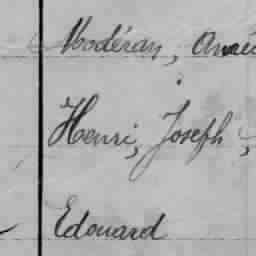 Modéran, André
Henri, Joseph,
Edouard